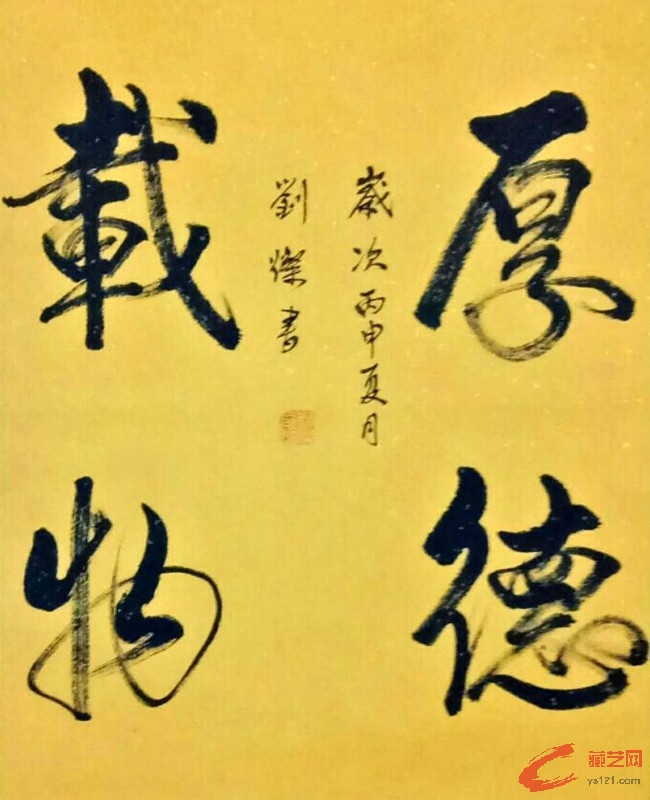 厚德
載物
歲次丙申夏月
劉燦書
藏艺网
ys121.com